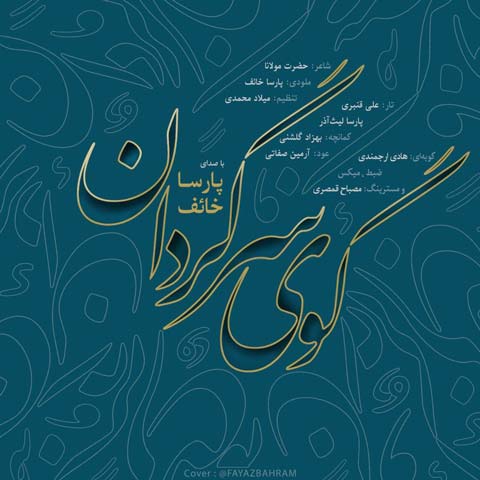 شاعر: حضرت مولانا
ملودی: پارسا خائف
تنظیم: میلاد محمدی
تار: علی قنبری
پارسا لیث‌آذر
کمانچه: بهزاد گلشنی
عود: آرمین صفائی
کوبه‌ای: هادی ارجمندی
ضبط، میکس
و مسترینگ: مصباح قمصری
با صدای
پارسا
خائف
گوی سرگردان
Cover : @FAYAZBAHRAM